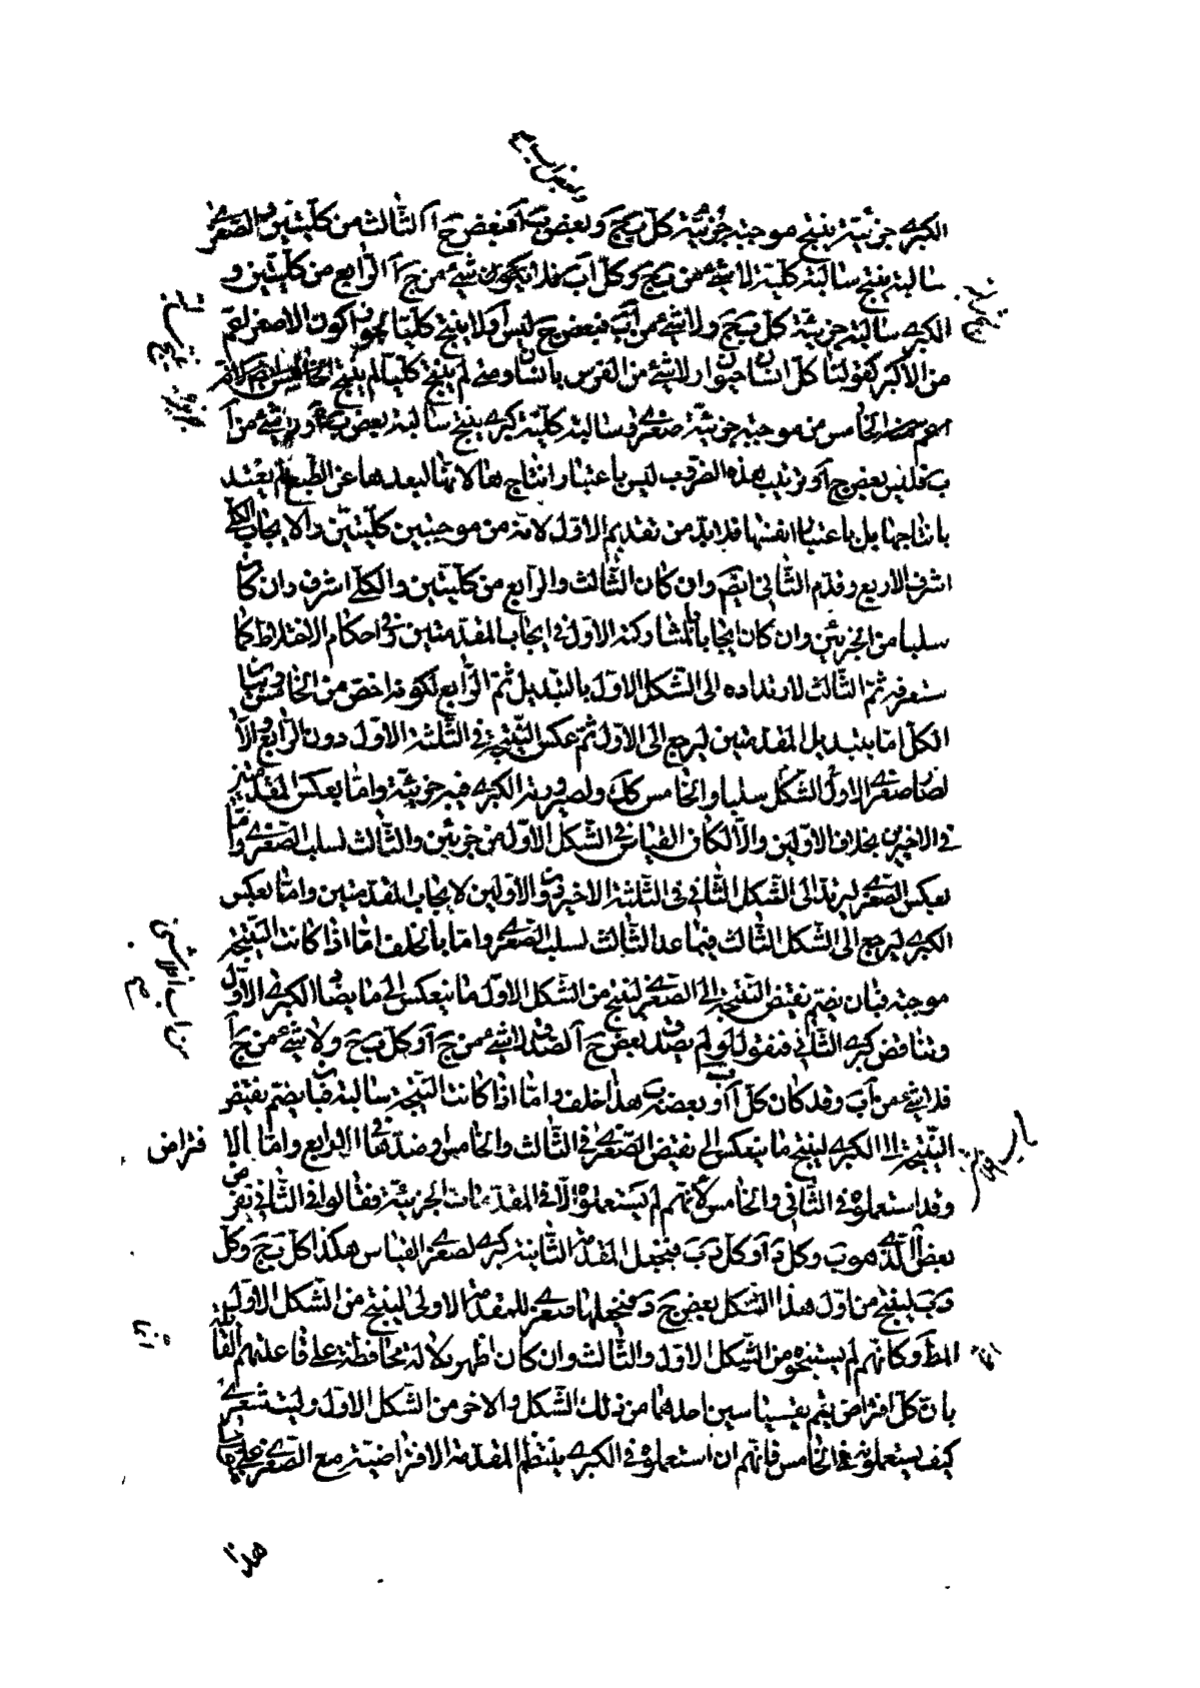 الكبرى جزئية ينتج موجبة جزئية كل ب ج وبعض ب آ فبعض ج آ الثالث من كليتين والصغرى
سالبة ينتج سالبة كلية لا شئ من ب ج وكل آ ب فلا يكون شئ من ج آ الرابع من كليتين و
الكبرى سالبة جزئية كل ب ج ولا شئ من آ ب فبعض ج ليس آ ولا ينتج كليا لجواز كون الاصغر اعم
من الاكبر كقولنا كل انسان حيوان ولا شئ من الفرس بانسان ومتى لم ينتج كليا لم ينتج
الخامس من موجبة جزئية صغرى وسالبة كلية كبرى ينتج سالبة بعض ب ج ولا شئ من آ
ب فليس بعض ج آ وترتيب هذه الضروب ليس باعتبار انتاجها لانها لبعدها عن الطبع لم يعتد
بانتاجها بل باعتبار انفسها فلا بد من تقديم الاول لانه من موجبتين كليتين والايجاب الكلى
اشرف الاربع وقدم الثانى ايضا وان كان الثالث والرابع من كليتين والكلى اشرف وان كان
سلبا من الجزئى وان كان ايجابا لمشاركته الاول فى ايجاب المقدمتين وفى احكام الاختلاط كما
ستعرفه ثم الثالث لارتداده الى الشكل الاول بالتبديل ثم الرابع لكونه اخص من الخامس وبيان
الكل اما بتبديل المقدمتين ليرجع الى الاول ثم عكس النتيجة فى الثلثة الاول دون الرابع والا
لصار صغرى الاول الشكل سلبا والخامس كك ولصيرورة الكبرى فيه جزئية واما بعكس المقدمتين
فى الاخيرين بخلاف الاولين والا لكان القياس فى الشكل الاول من جزئين والثالث لسلب الصغرى واما
بعكس الصغرى ليرتد الى الشكل الثانى فى الثلثة الاخيرة دون الاولين لايجاب المقدمتين واما بعكس
الكبرى ليرجع الى الشكل الثالث فيما عدا الثالث لسلب الصغرى واما بالخلف اما اذا كانت النتيجة
موجبة فبان يضم نقيض النتيجة الى الصغرى لينتج من الشكل الاول ما ينعكس الى ما يضاد الكبرى الاول
وتناقض كبرى الثانى فنقول لو لم يصدق بعض ج آ لصدق لا شئ من ج آ وكل ب ج ولا شئ من ج آ
فلا شئ من آ ب وقد كان كل آ ب او بعضه ب هذا خلف واما اذا كانت النتيجة سالبة فبان يضم نقيض
النتيجة الى الكبرى لينتج ما ينعكس الى نقيض الصغرى فى الثالث والخامس وضدها فى الرابع واما بالا فتراض
وقد استعملوه فى الثانى والخامس لانهم لم يستعملوه الا فى المقدمات الجزئية فقالوا فى الثانى نفرض
بعض آ الذى هو ب د وكل د آ وكل د ب فنجعل المقدمة الثانية كبرى لصغرى القياس هكذا كل ب ج وكل
د ب لينتج من اول هذا الشكل بعض ج د فنجعلها صغرى للمقدمة الاولى لينتج من الشكل الاول
المط وكانهم لم يستنتجوه من الشكل الاول والثالث وان كان اظهر دلالة محافظة على قاعدتهم القائلة
بان كل افتراض يتم بقياسين احدهما من ذلك الشكل والاخر من الشكل الاول وليت شعرى
كيف يستعملونه فى الخامس فانهم ان استعملوه فى الكبرى ينتظم المقدمة الافتراضية مع الصغرى على
هذا